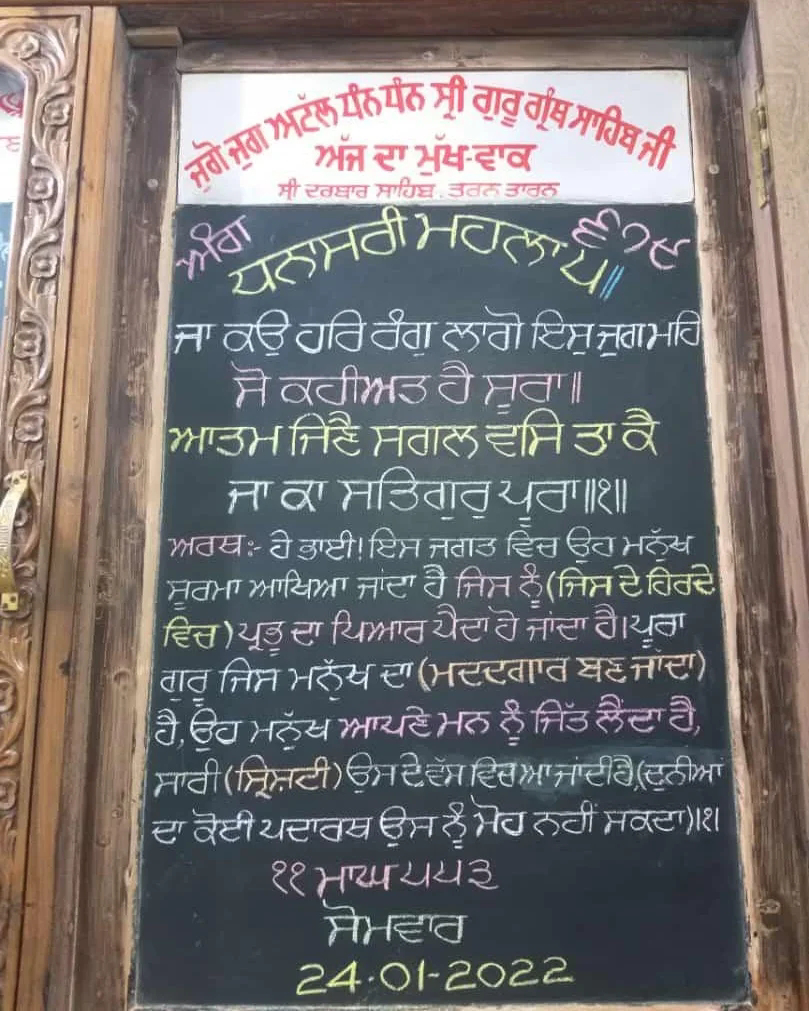 ਜੁਗੋ ਜੁਗ ਅਟੱਲ ਧੰਨ ਧੰਨ ਸ੍ਰੀ ਗੁਰੂ ਗ੍ਰੰਥ ਸਾਹਿਬ ਜੀ
ਅੱਜ ਦਾ ਮੁੱਖ-ਵਾਕ
ਸ੍ਰੀ ਦਰਬਾਰ ਸਾਹਿਬ . ਤਰਨ ਤਾਰਨ
ਅੰਗ ਧਨਾਸਰੀ ਮਹਲਾ ੫॥ ੬੭੯
ਜਾ ਕਉ ਹਰਿ ਰੰਗੁ ਲਾਗੋ ਇਸੁ ਜੁਗ ਮਹਿ
ਸੋ ਕਹੀਅਤ ਹੈ ਸੂਰਾ॥
ਆਤਮ ਜਿਣੈ ਸਗਲ ਵਸਿ ਤਾ ਕੈ
ਜਾ ਕਾ ਸਤਿਗੁਰੁ ਪੂਰਾ॥੧॥
ਅਰਥ:- ਹੇ ਭਾਈ! ਇਸ ਜਗਤ ਵਿਚ ਉਹ ਮਨੁੱਖ
ਸੂਰਮਾ ਆਖਿਆ ਜਾਂਦਾ ਹੈ ਜਿਸ ਨੂੰ (ਜਿਸ ਦੇ ਹਿਰਦੇ
ਵਿਚ) ਪ੍ਰਭੂ ਦਾ ਪਿਆਰ ਪੈਦਾ ਹੋ ਜਾਂਦਾ ਹੈ। ਪੂਰਾ
ਗੁਰੂ ਜਿਸ ਮਨੁੱਖ ਦਾ (ਮਦਦਗਾਰ ਬਣ ਜਾਂਦਾ)
ਹੈ, ਉਹ ਮਨੁੱਖ ਆਪਣੇ ਮਨ ਨੂੰ ਜਿੱਤ ਲੈਂਦਾ ਹੈ,
ਸਾਰੀ (ਸ੍ਰਿਸ਼ਟੀ) ਉਸ ਦੇ ਵੱਸ ਵਿਚ ਆ ਜਾਂਦੀ ਹੈ, (ਦੁਨੀਆਂ
ਦਾ ਕੋਈ ਪਦਾਰਥ ਉਸ ਨੂੰ ਮੋਹ ਨਹੀਂ ਸਕਦਾ)।੧।
੧੧ ਮਾਘ ੫੫੩
ਸੋਮਵਾਰ
24-01-2022